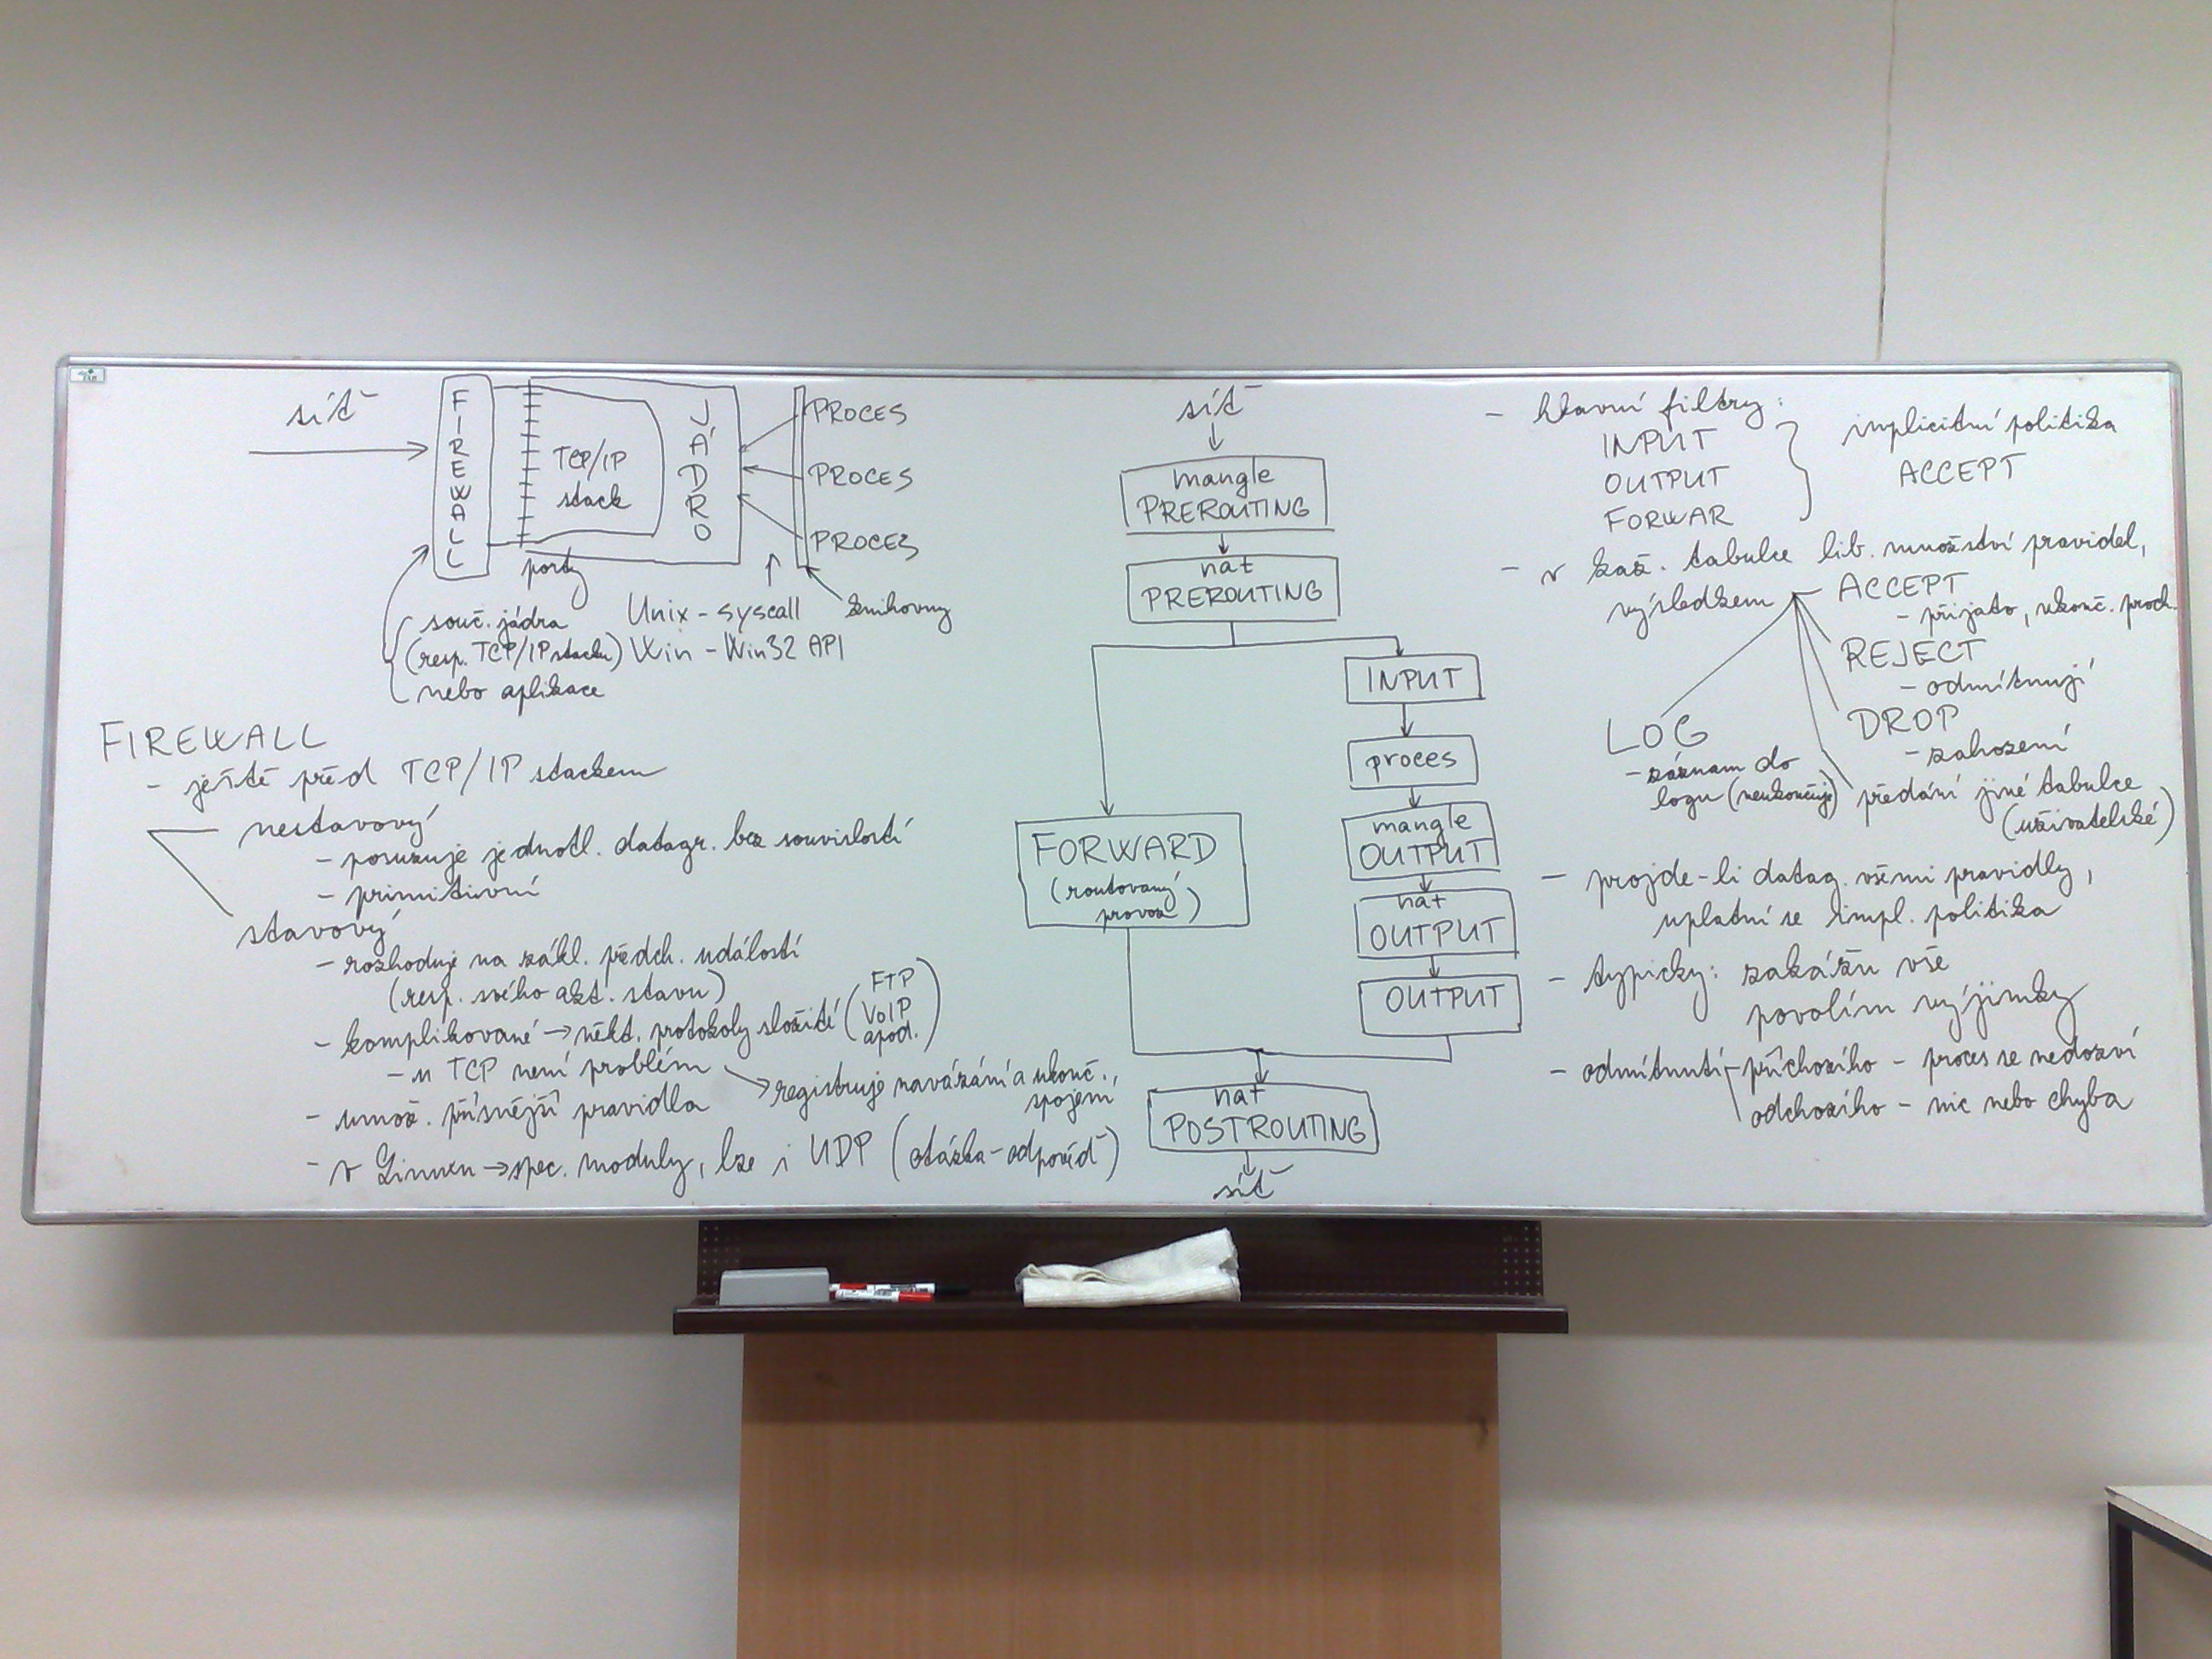 síť
FIREWALL
TCP/IP
stack
JÁDRO
PROCES
PROCES
PROCES
porty
souč. jádra
(resp. TCP/IP stacku)
nebo aplikace
Unix - syscall
Win - Win32 API
knihovny
FIREWALL
- ještě před TCP/IP stackem
nestavový
- posuzuje jednotl. datagr. bez souvislostí
- primitivní
stavový
- rozhoduje na zákl. předch. událostí
(resp. svého akt. stavu)
- komplikované → někt. protokoly složité (FTP
VoIP
apod.)
- u TCP není problém
→ registruje navázání a ukonč.,
spojení
- umož. přísnější pravidla
- v Linuxu → spec. moduly, lze i UDP (otázka - odpověď)
síť
mangle
PREROUTING
nat
PREROUTING
INPUT
proces
mangle
OUTPUT
nat
OUTPUT
OUTPUT
FORWARD
(routovaný
provoz)
nat
POSTROUTING
síť
- hlavní filtry:
INPUT
OUTPUT
FORWAR
implicitní politika
ACCEPT
- v kaž. tabulce lib. množství pravidel,
výsledkem
ACCEPT
- přijato, ukonč. proch.
REJECT
- odmítnují
DROP
- zahození
LOG
- záznam do
logu (neukončuje)
předání jiné tabulce
(uživatelské)
- projde-li datag. všemi pravidly,
uplatní se impl. politika
- typicky: zakážu vše
povolím výjimky
- odmítnutí
příchozího - proces se nedozví
odchozího - nic nebo chyba